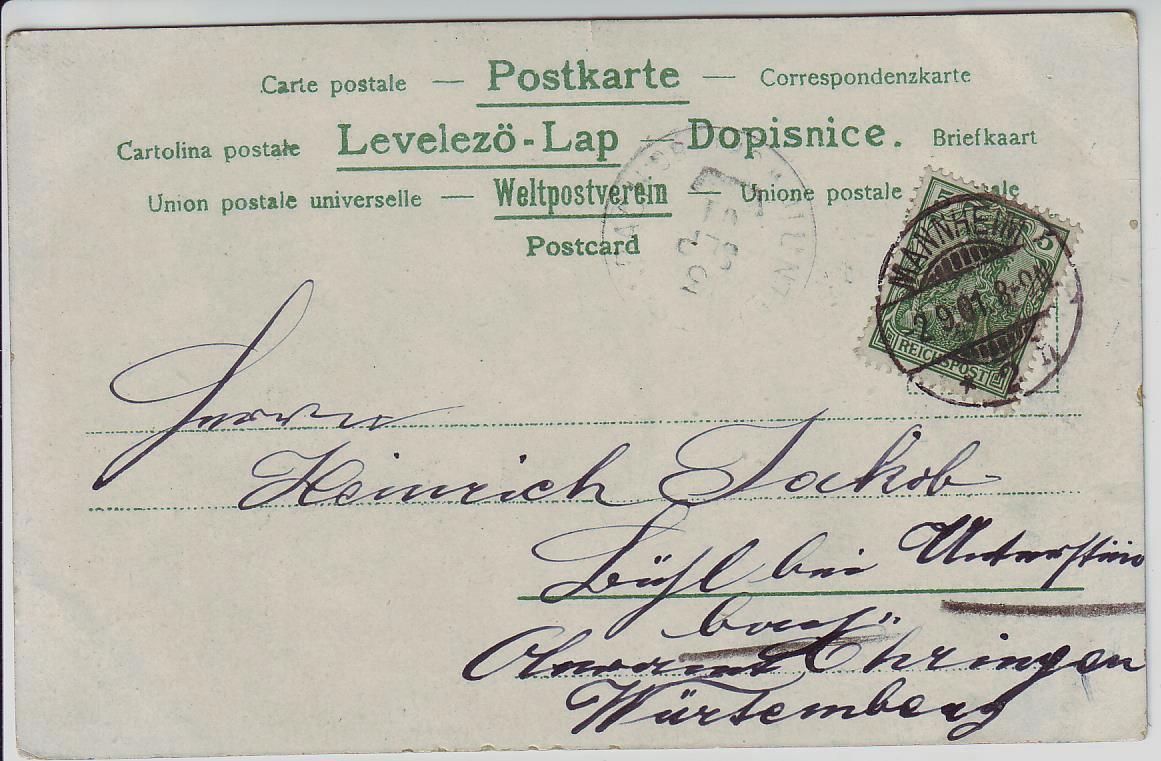 Carte postale — Postkarte — Correspondenzkarte
Cartolina postale Levelező-Lap — Dopisnice. Briefkaart
Union postale universelle — Weltpostverein — Unione postale
Postcard
5
REICHSPOST
MANNHEIM
2.9.01. 8-9N
* 2
Herrn
Heinrich Jakob
Bühl bei Unterstein
bach
Oberamt Öhringen
Würtemberg